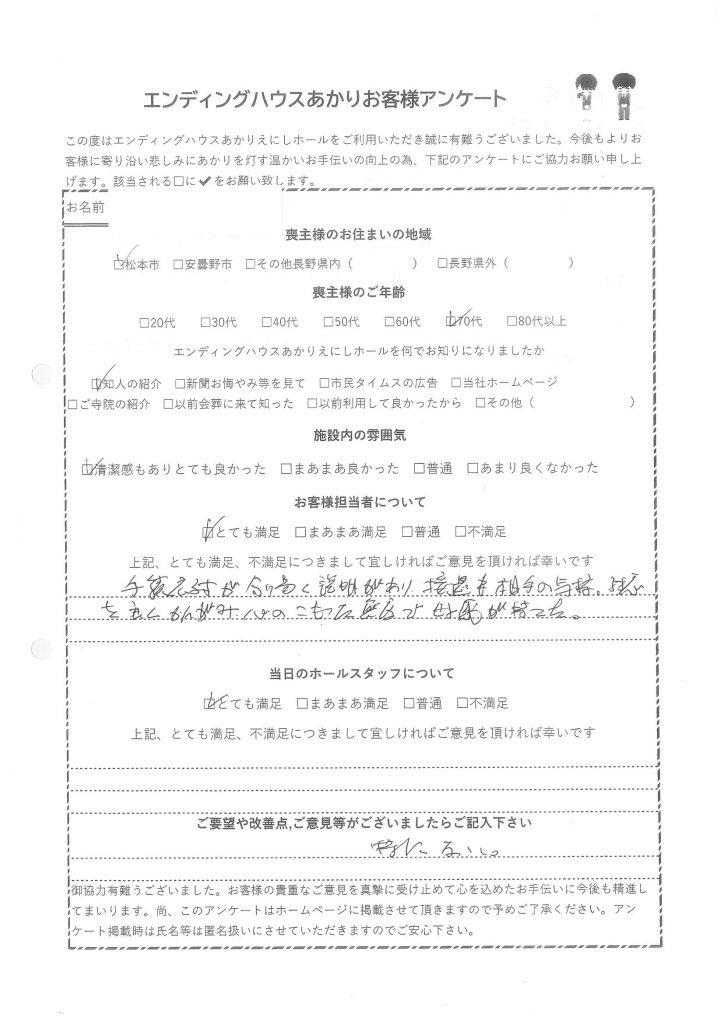 エンディングハウスあかりお客様アンケート
この度はエンディングハウスあかりえにしホールをご利用いただき誠に有難うございました。今後もよりお
客様に寄り沿い悲しみにあかりを灯す温かいお手伝いの向上の為、下記のアンケートにご協力お願い申し上
げます。該当される□に✔をお願い致します。
お名前
喪主様のお住まいの地域
☑松本市 □安曇野市 □その他長野県内（ ） □長野県外（ ）
喪主様のご年齢
□20代 □30代 □40代 □50代 □60代 ☑70代 □80代以上
エンディングハウスあかりえにしホールを何でお知りになりましたか
☑知人の紹介 □新聞お悔やみ等を見て □市民タイムスの広告 □当社ホームページ
□ご寺院の紹介 □以前会葬に来て知った □以前利用して良かったから □その他（ ）
施設内の雰囲気
☑清潔感もありとても良かった □まあまあ良かった □普通 □あまり良くなかった
お客様担当者について
☑とても満足 □まあまあ満足 □普通 □不満足
上記、とても満足、不満足につきまして宜しければご意見を頂ければ幸いです
説明があり 接遇も相手の気持
を よく かんがみ 心のこもった態度で 好感が持てた。
当日のホールスタッフについて
☑とても満足 □まあまあ満足 □普通 □不満足
上記、とても満足、不満足につきまして宜しければご意見を頂ければ幸いです
ご要望や改善点,ご意見等がございましたらご記入下さい
特になし。
御協力有難うございました。お客様の貴重なご意見を真摯に受け止めて心を込めたお手伝いに今後も精進し
てまいります。尚、このアンケートはホームページに掲載させて頂きますので予めご了承ください。アン
ケート掲載時は氏名等は匿名扱いにさせていただきますのでご安心下さい。